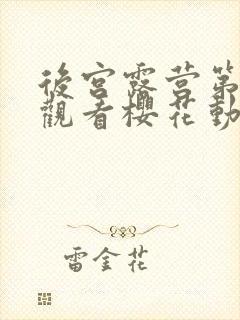 後宮露營第
觀看櫻花動
雷金花